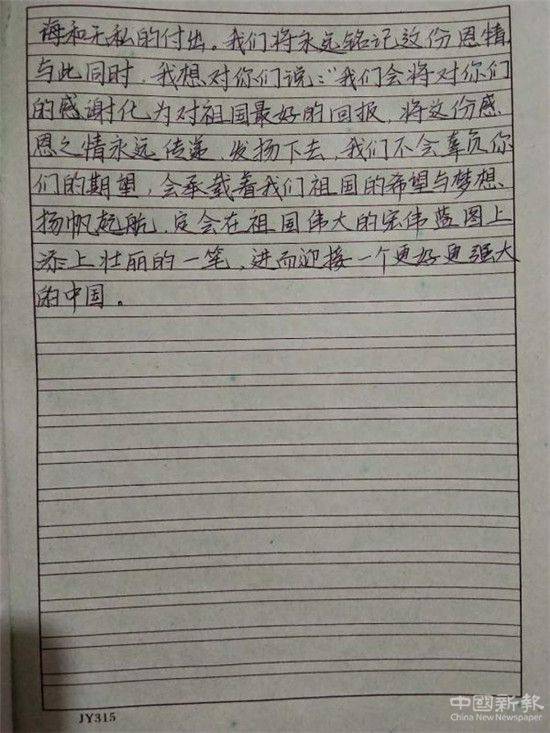 诲和无私的付出。我们将永远铭记这份恩情,
与此同时,我想对你们说:“我们会将对你们
的感谢化为对祖国最好的回报,将这份感
恩之情永远传递、发扬下去,我们不会辜负你
们的期望,会承载着我们祖国的希望与梦想,
扬帆起航,定会在祖国伟大的宏伟蓝图上
添上壮丽的一笔,进而迎接一个更好更强大
的中国。
JY315
中國新報
China New Newspaper